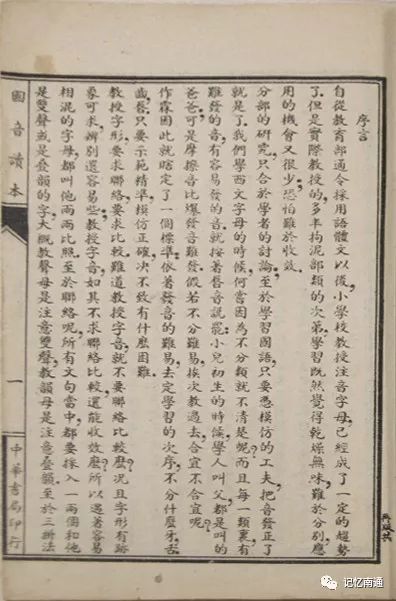 序言
自從教育部通令採用語體文以後，小學校教授注音字母，已經成了一定的趨勢
了。但是實際教授的，多半拘泥部類的次第，學習既然覺得乾燥無味，難於分別，應
用的機會又很少，恐怕難於收效。
分部的研究，只合於學者的討論；至於學習國語，只要憑模仿的工夫，把音發正了，
就是了。我們學西文字母的時候，何嘗因為不分類就不清楚呢？而且每一類裏有
難發的音，有容易發的音。就按著唇音說罷：小兒初生的時候，學人叫父都是叫的
爸爸，可是摩擦音比爆發音難發，假若不分難易，挨次教過去，合宜不合宜呢？
作霖因此就瞎定了一個標準；依著發音的難易，去定學習的次序，不分什麼牙，舌，
齒，唇，只要示範精準，模仿正確，決不致有什麼困難。
教授字形，要求聯絡，要求比較，難道教授字音，就不要聯絡比較麼？況且字形有跡
象可求，辨別還容易些；教授字音，如其不求聯絡比較，還能收效麼？所以遇著容易
相混的字母，都叫他兩兩比照。至於聯絡呢，所有文句當中，都要採入一兩個和他
是雙聲或是疊韻的字。大概教聲母是注意雙聲，教韻母是注意疊韻，至於三拼法
國音讀本
一
中華書局印行
记忆南通